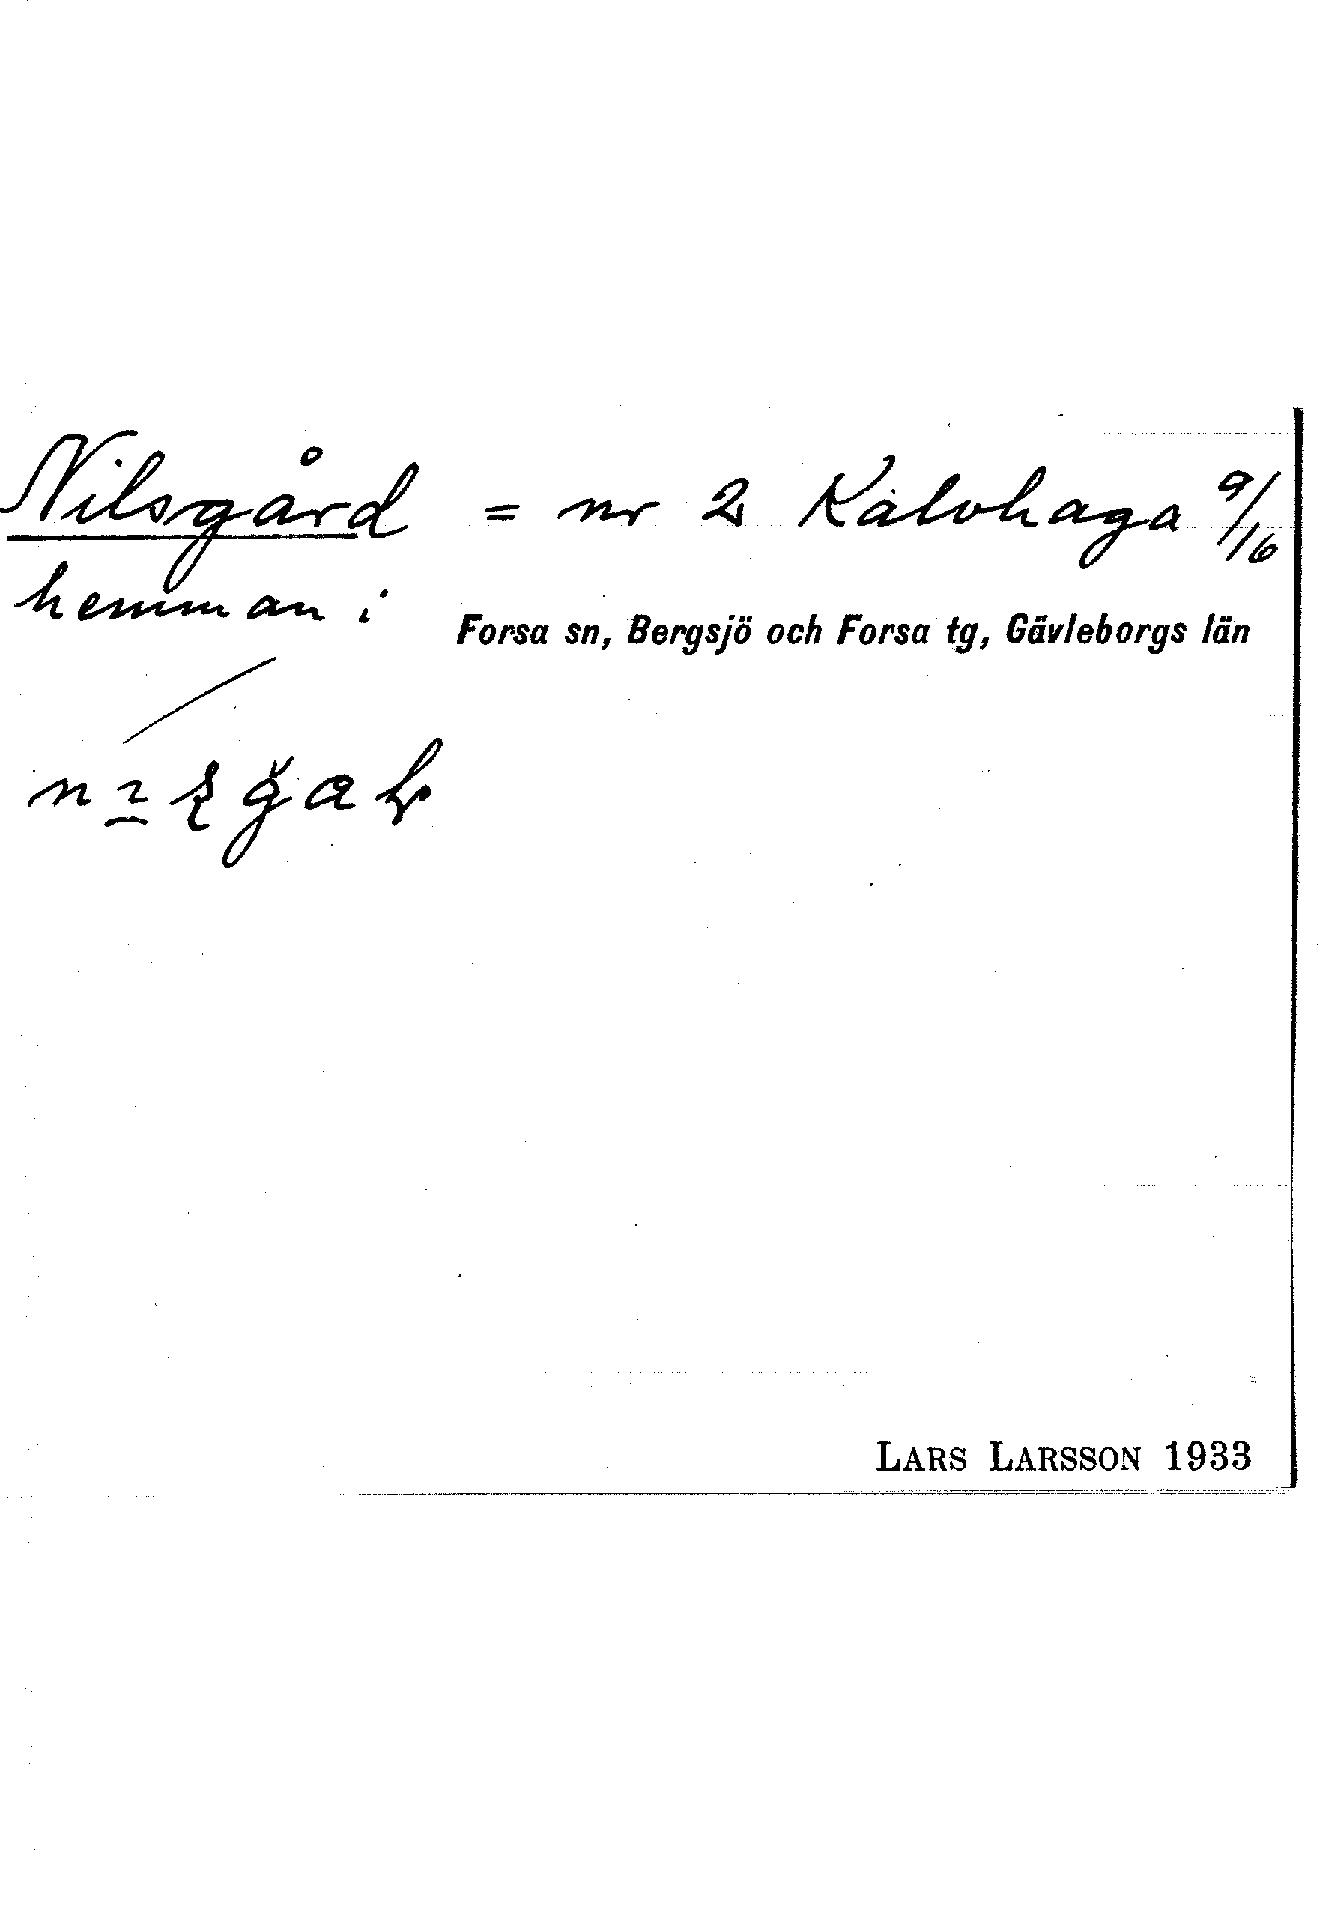 Nilsgård = nr 2 Kalvhaga 9/16
hemman i Forsa sn, Bergsjö och Forsa tg, Gävleborgs län
LARS LARSSON 1933